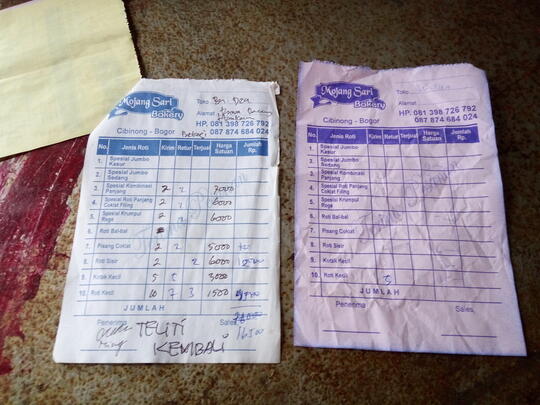 Mojang Sari
Bakery
Toko
Alamat
HP. 081 398 726 792
087 874 684 024
Cibinong - Bogor
No. Jenis Roti Kirim Retur Terjual Harga Satuan Jumlah Rp.
1. Spesial Jumbo Kasur
2. Spesial Jumbo Sedang
3. Spesial Kombinasi Panjang 2 2 7000
4. Spesial Roti Panjang Coklat Filing 2 6000
5. Spesial Krumpul Roge 2 2 6000
6. Roti Bal-bal
7. Pisang Coklat 2 2 5000
8. Roti Sisir 2 2 6000
9. Kotak Kecil 5 5 3000
10. Roti Kecil 10 7 3 1500
JUMLAH
Penerima Sales,
16500
TELITI
KEMBALI
Mojang Sari
Bakery
Toko
Alamat
HP. 081 398 726 792
087 874 684 024
Cibinong - Bogor
No. Jenis Roti Kirim Retur Terjual Harga Satuan Jumlah Rp.
1. Spesial Jumbo Kasur
2. Spesial Jumbo Sedang
3. Spesial Kombinasi Panjang
4. Spesial Roti Panjang Coklat Filing
5. Spesial Krumpul Roge
6. Roti Bal-bal
7. Pisang Coklat
8. Roti Sisir
9. Kotak Kecil
10. Roti Kecil 5
JUMLAH
Penerima Sales,